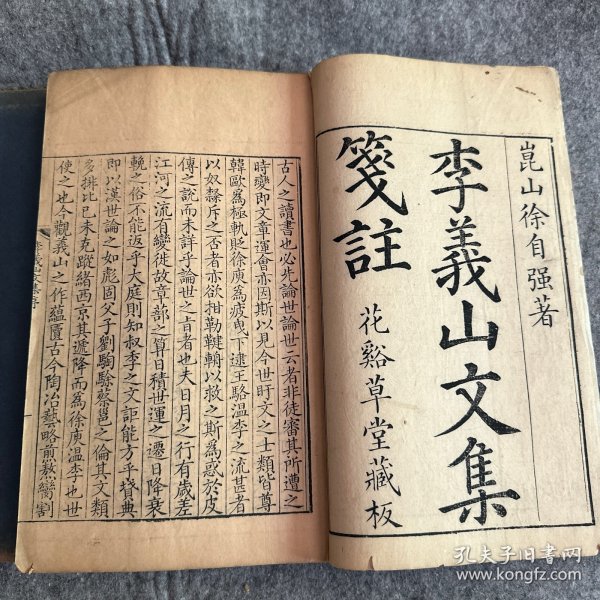 崑山徐自强著
李義山文集
箋註
花谿草堂藏板
古人之讀書也必先論世論世云者非徒審其所遭之
時變即文章運會亦因斯以見今世盱文之士類皆尊
韓歐為極軌貶徐庾為疲曳下逮王駱温李之流甚者
以奴隸斥之否者亦欲拑勒鞿鞘以救之斯為惑於皮
傳之說而未詳乎論世之旨者也夫日月之行有歲差
江河之流有變徙故章蔀之算日積世運之遷日降衰
輓之俗不能返乎大庭則知叔季之文詎能方乎墳典
即以漢世論之如彪固父子劉騊駼蔡邕之倫其文類
多排比已未克蹤緒西京其遞降而為徐庾温李也世
使之也今觀義山之作蘊匱古今陶冶藝略煎熬鸞割
孔夫子旧书网
www.kongfz.com